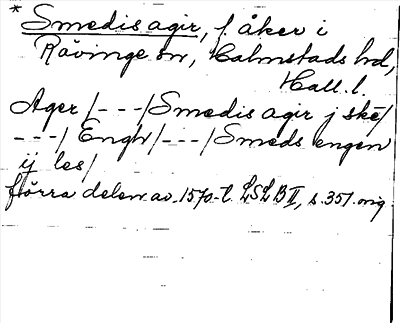 * Smedis agir, f. åker i
Rävinge sn, Halmstads hd,
Hall. l.
Ager /---/ Smedis agir j ske/
---/ Engh /---/ Smeds engen
ij les/
förra delen av 1570-t. LSLB II, s. 351. orig.